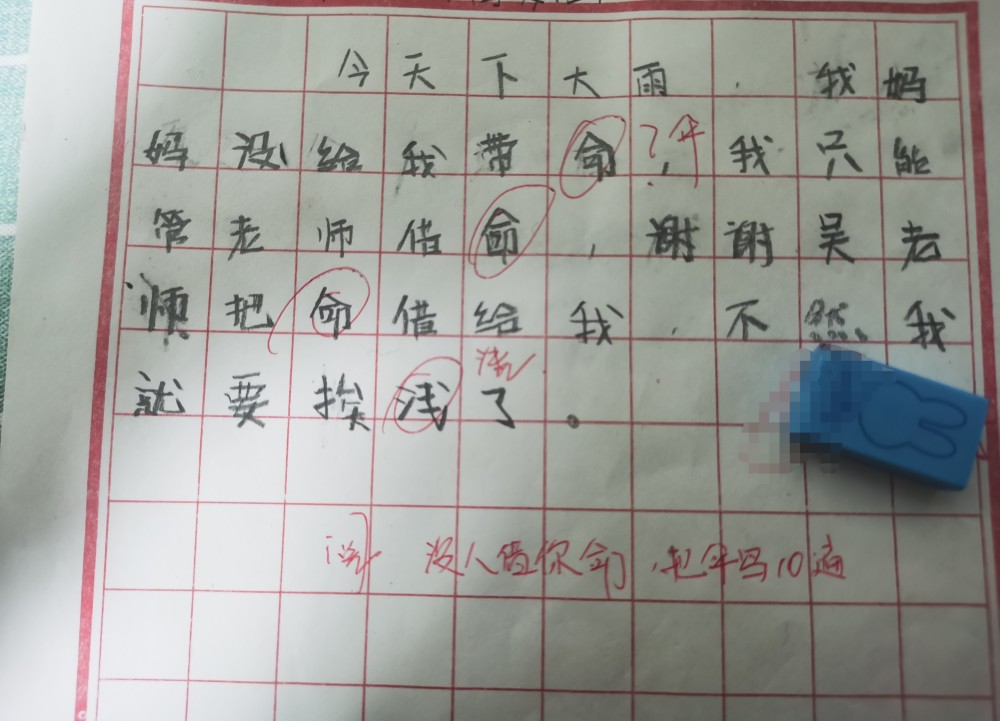 今天下大雨，我妈
妈没给我带命，我只能
？伞
管老师借命，谢谢吴老
师把命借给我，不然我
就要挨浅了。
没人借你命，把伞写10遍